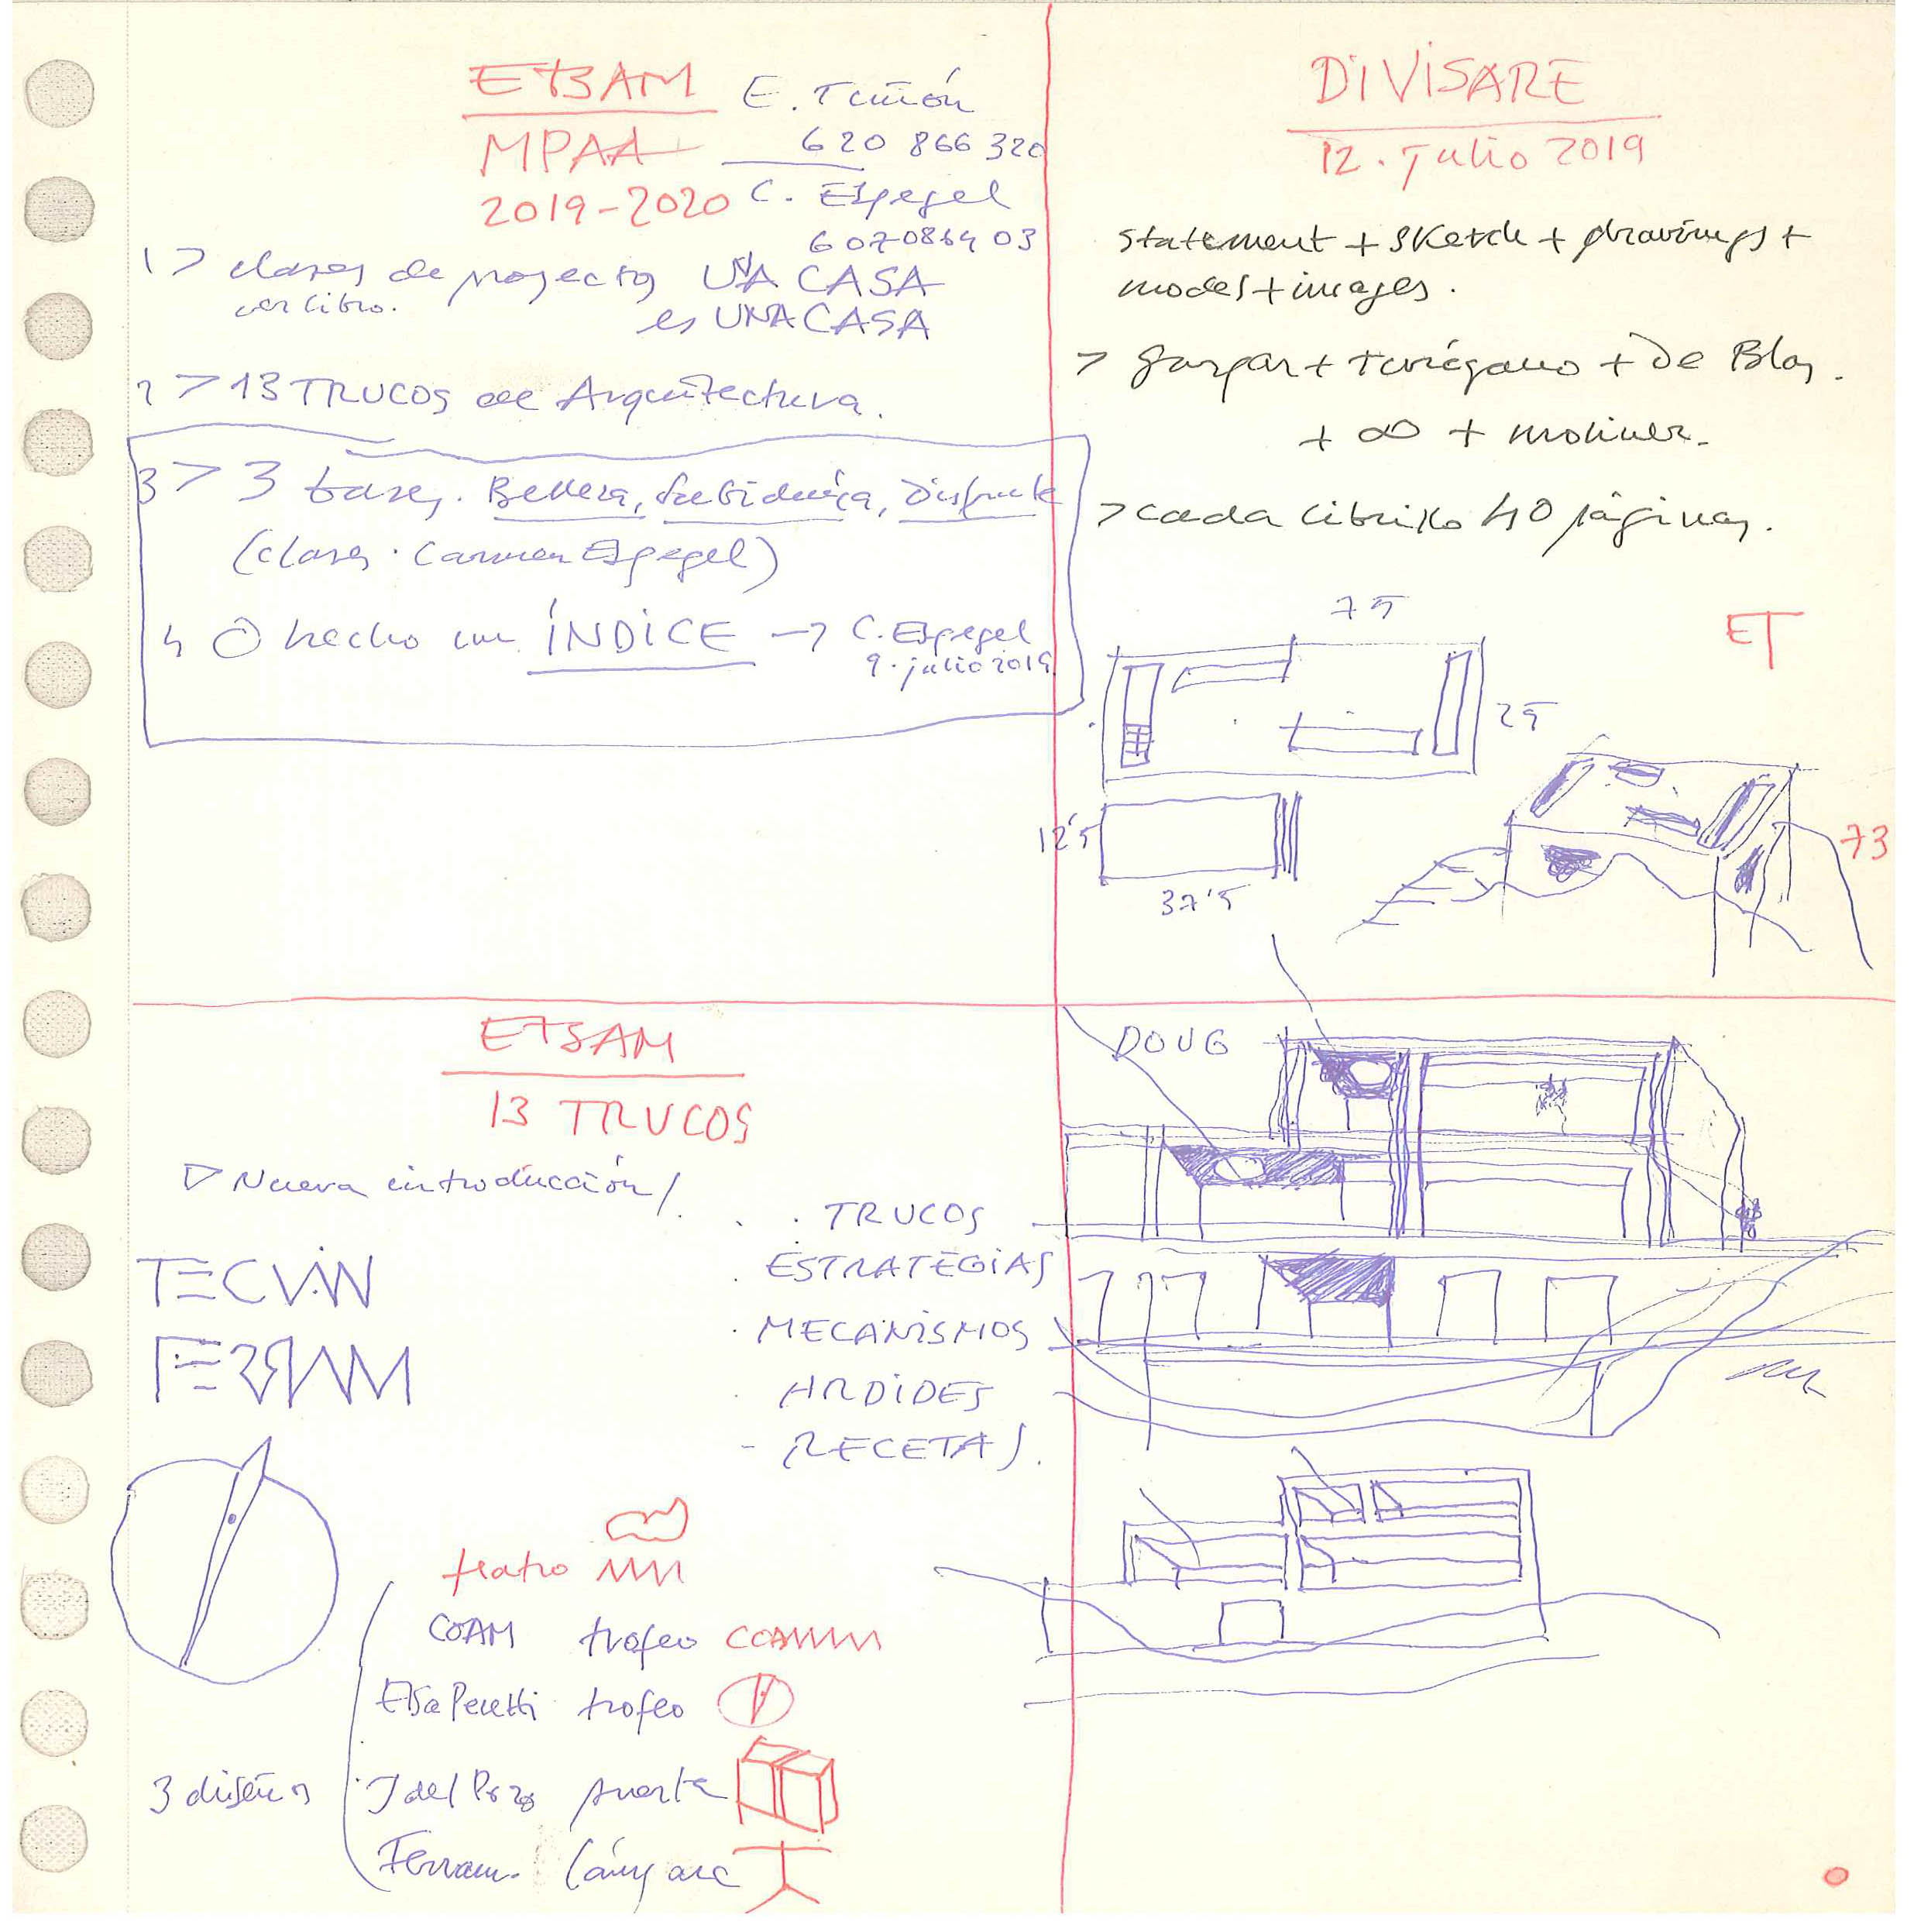 ETSAM
MPAA
2019-2020
E. Tuñón
620 866 320
C. Espegel
1> clases de proyectos UNA CASA
ver libro. es UNA CASA
2 > 13 TRUCOS de Arquitectura.
3 > 3 bases. Belleza, Sabiduría, Disfrute
(clases. Carmen Espegel)
4 hecho un ÍNDICE → C. Espegel
9. julio 2019
DIVISARE
12. Julio 2019
statement + sketch + drawings +
model + images.
> Gaspar + Turégano + De Blas.
+ ∞ + moliner.
> cada librillo 40 páginas.
75
25
12'5
37'5
ET
73
ETSAM
13 TRUCOS
▷ Nueva introducción/
. TRUCOS
. ESTRATEGIAS
. MECANISMOS
. ARDIDES
- RECETAS.
TECVIN
DOUG
teatro
COAM trofeo COAMMM
Elsa Peretti trofeo
3 diseños
J del Pozo puerta
Ferram. lámpara